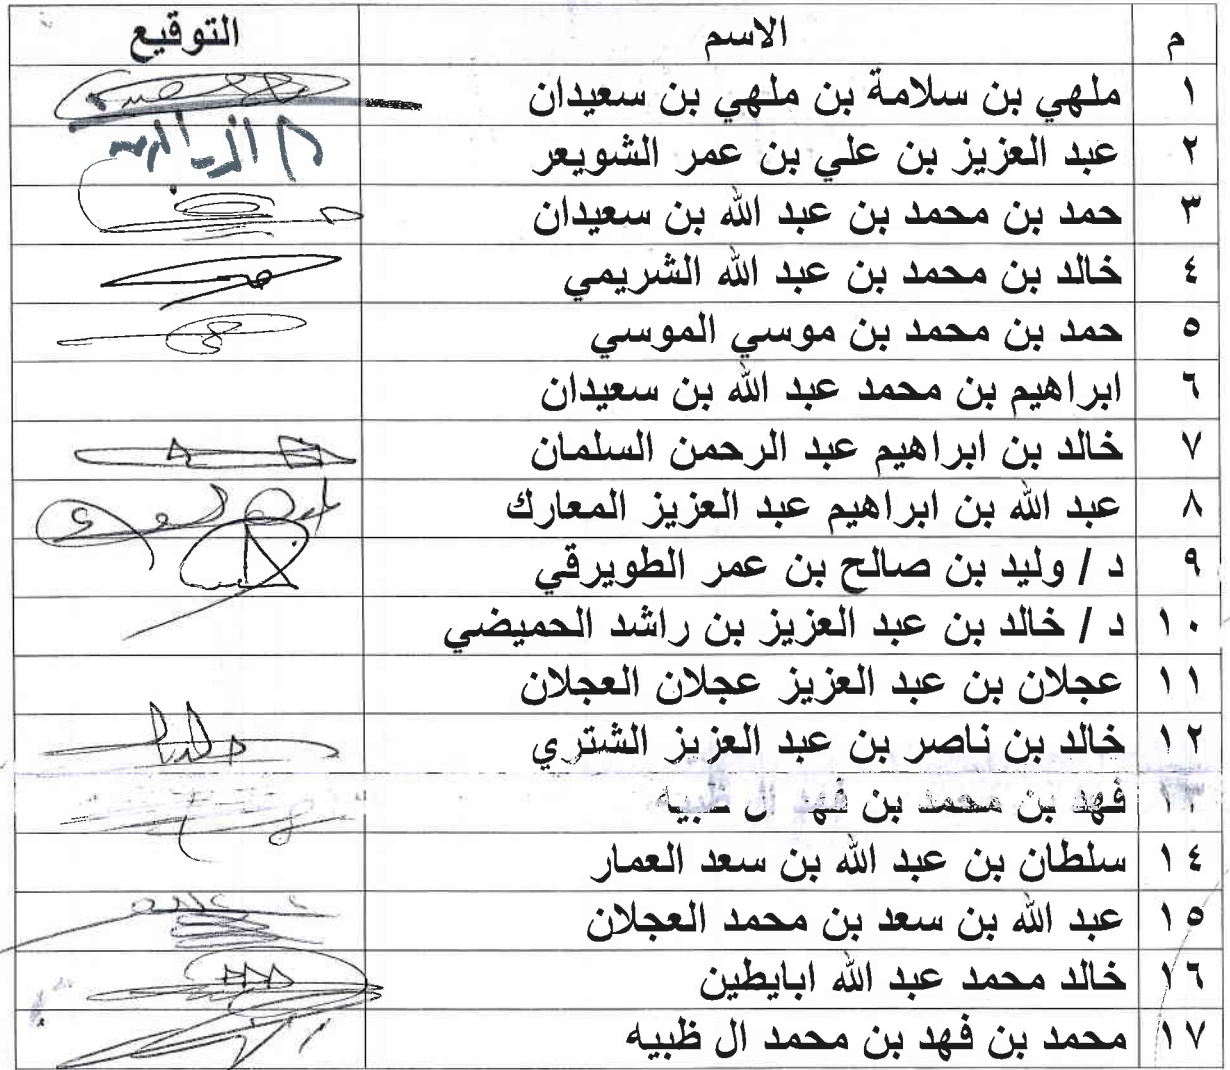 م الاسم التوقيع
١ ملهي بن سلامة بن ملهي بن سعيدان
٢ عبد العزيز بن علي بن عمر الشويعر
٣ حمد بن محمد بن عبد الله بن سعيدان
٤ خالد بن محمد بن عبد الله الشريمي
٥ حمد بن محمد بن موسي الموسي
٦ ابراهيم بن محمد عبد الله بن سعيدان
٧ خالد بن ابراهيم عبد الرحمن السلمان
٨ عبد الله بن ابراهيم عبد العزيز المعارك
٩ د / وليد بن صالح بن عمر الطويرقي
١٠ د / خالد بن عبد العزيز بن راشد الحميضي
١١ عجلان بن عبد العزيز عجلان العجلان
١٢ خالد بن ناصر بن عبد العزيز الشتري
١٣ فهد بن محمد بن فهد ال ظبيه
١٤ سلطان بن عبد الله بن سعد العمار
١٥ عبد الله بن سعد بن محمد العجلان
١٦ خالد محمد عبد الله ابابطين
١٧ محمد بن فهد بن محمد ال ظبيه